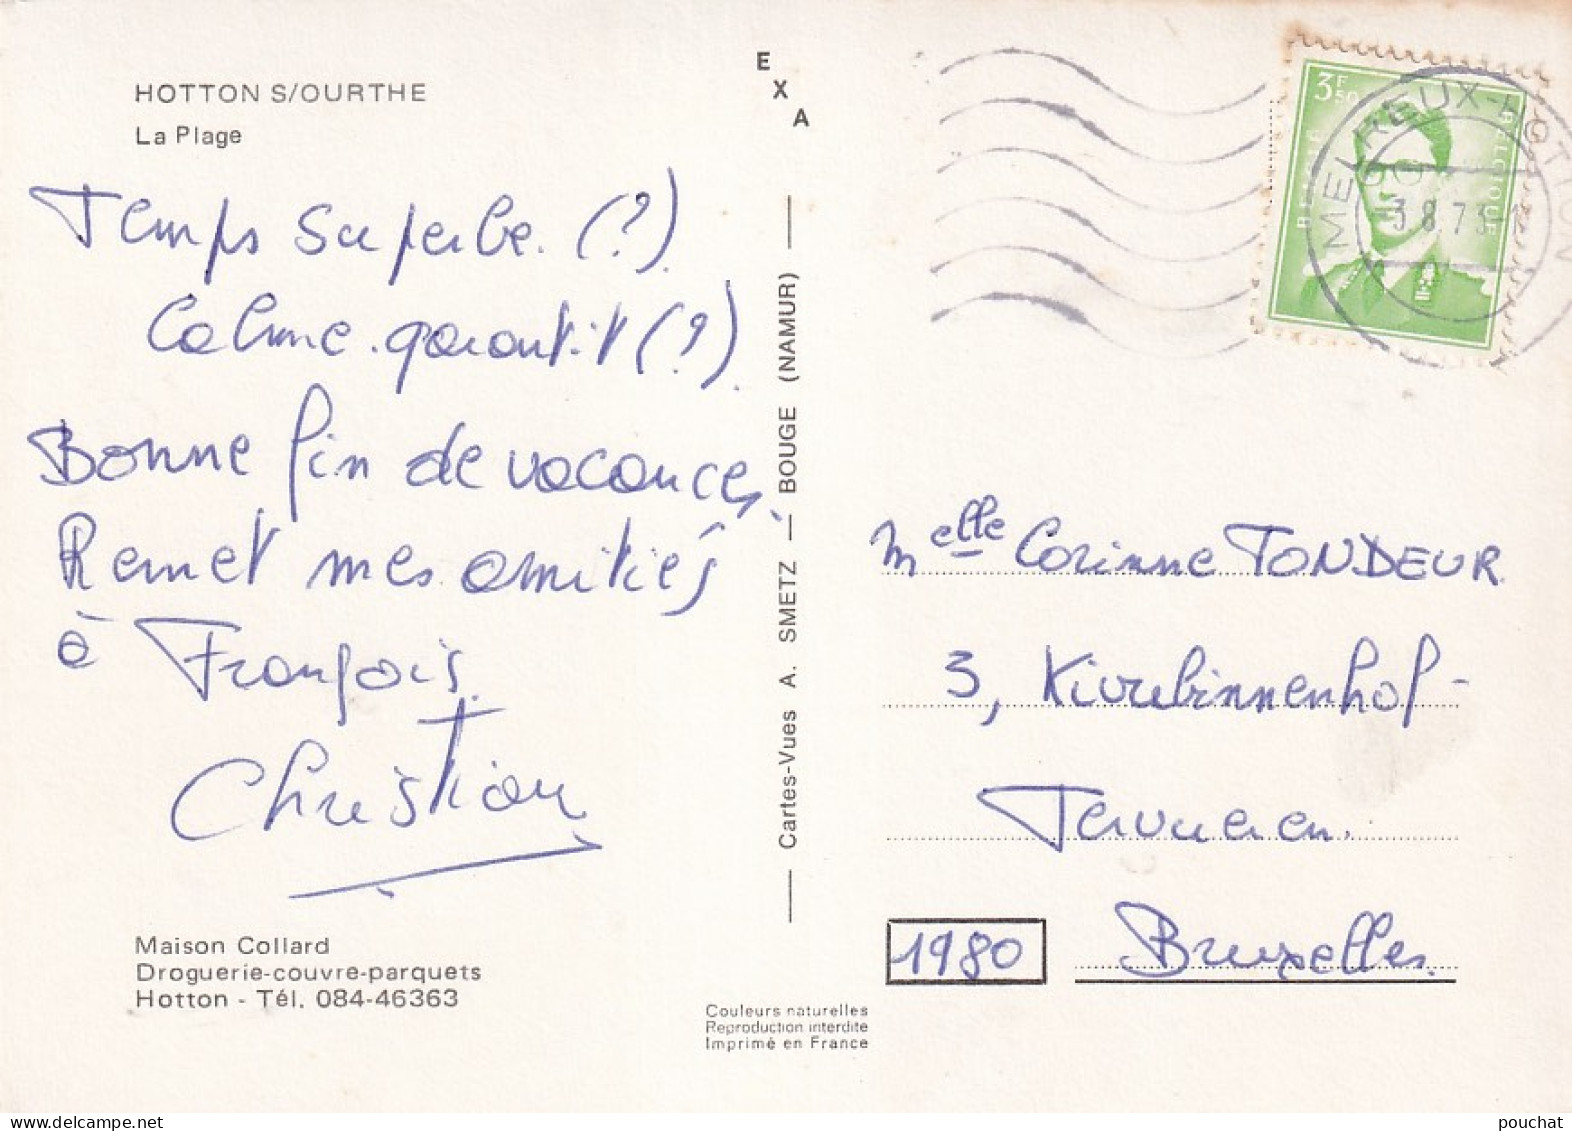 HOTTON S/OURTHE
La Plage
Temps superbe. (?).
Calme. garantit (?).
Bonne fin de vacances,
Remet mes amitiés
à François.
Christian
Maison Collard
Droguerie-couvre-parquets
Hotton - Tél. 084-46363
EXA
Cartes-Vues A. SMETZ — BOUGE (NAMUR)
Couleurs naturelles
Reproduction interdite
Imprimé en France
3F50
BELGIE BELGIQUE
MELREUX-HOTTON
3.8.73-1
Melle Corinne TONDEUR
3,
Tervueren.
1980 Bruxelles.
pouchat